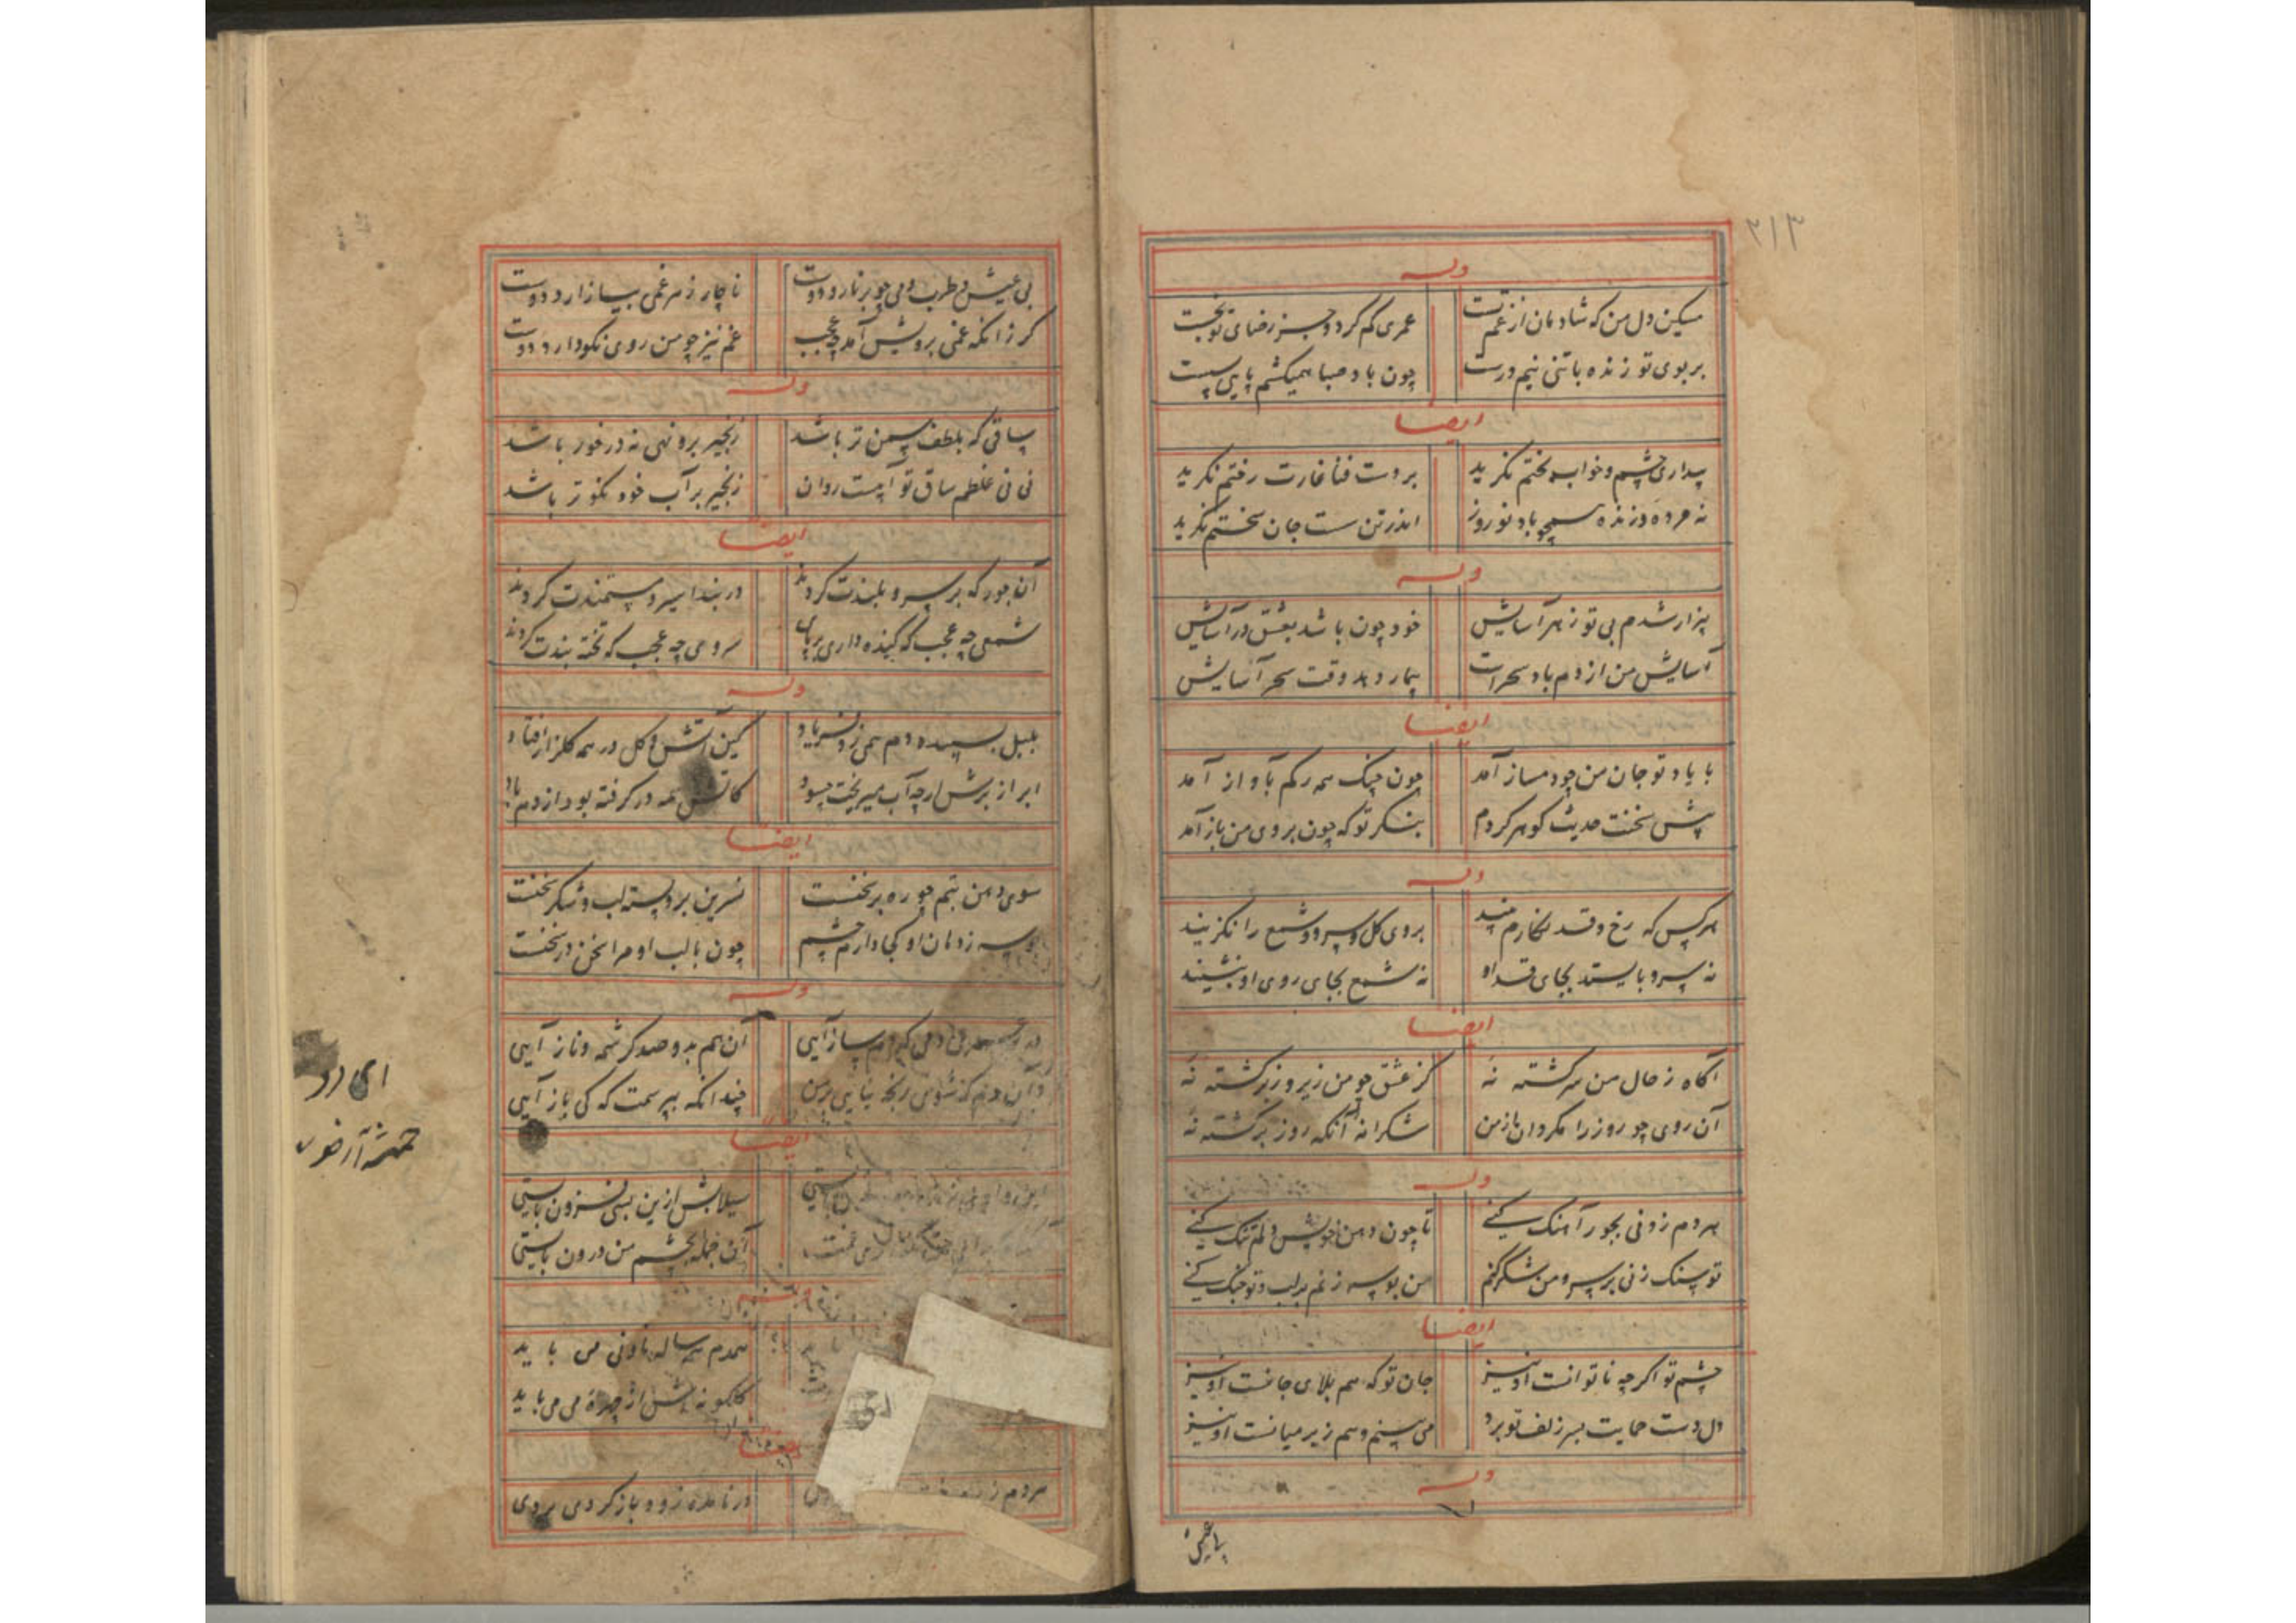 ۲۱۳
وله
مسکین دل من که شادمان از غم تست عمری کم کرد و جز رضای تو نجست
بر بوی تو زنده با تنی نیم درست چون باد صبا همیکشم پایی سست
ایضا
بیداری چشم و خواب بختم نگرید بر دست فنا غارت رختم نگرید
نه مرده و زنده همچو باد نوروز اندر تن سست جان سختم نگرید
وله
بیزار شدم بی تو ز هر آسایش خود چون باشد بعشق در آسایش
آسایش من از دم باد سحرست بیمار دهد وقت سحر آسایش
ایضا
با یاد تو جان من چو دمساز آمد چون چنک همه رکم بآواز آمد
پیش سخنت حدیث کوهر کردم بنکر تو که چون بروی من باز آمد
وله
هر کس که رخ و قد نکارم بیند بروی کل و سرو و شمع را نکزیند
نه سرو بایستد بجای قد او نه شمع بجای روی او بنشیند
ایضا
آکاه ز حال من سرکشته نه کز عشق چو من زیر و زبر کشته نه
آن روی چو روز را مکردان از من شکرانه آنکه روز برکشته نه
وله
هر دم ز ونی بجور آهنک کنی تا چون دهن خویش دلم تنک کنی
تو سنک زنی بر سر و من شکر کنم من بوسه زنم بر لب و تو جنک کنی
ایضا
چشم تو اکرچه ناتوانست او نیز جان تو که هم بلای جانست او نیز
دل دست حمایت بسر زلف تو برد می بینم و هم زیر میانست او نیز
وله
بی عیش
بی عیش و طرب دمی چو بر نارد دوست ناچار ز هر غمی بیازارد دوست
کر زانکه غمی برویش آمد چه عجب غم نیز چو من روی نکو دارد دوست
وله
ساقی که بلطف سمن تر باشد زنجیر برو نهی نه در خور باشد
نی نی غلطم ساق تو آبیست روان زنجیر بر آب خود نکوتر باشد
ایضا
آن جور که بر سرو بلندت کردند در بند اسیر و مستمندت کردند
شمعی چه عجب که کنده داری بر پای سروی چه عجب که تخته بندت کردند
وله
بلبل بسپیده دم همی زد فریاد کین آتش کل در همه کلزار افتاد
ابر از برش ارچه آب میریخت چسود کاتش همه در کرفته بود از دم باد
ایضا
سوی دهن بتم چو ره برنخست نسرین بر و پسته لب و شکر سخنست
بوسه ز دهان او کجا دارم چشم چون با لب او مرا سخن در سخنست
وله
آن هم بدو صد کرشمه و ناز آیی
چندانکه بپرسمت که کی باز آیی
ایضا
سیلابش ازین بسی فزون بایستی
آن جمله بچشم من درون بایستی
وله
همدم همه ساله نا ونی می باید
کلکونه اش از چهره می می باید
ایضا
مردم ز در نامده زود باز کردی بردی